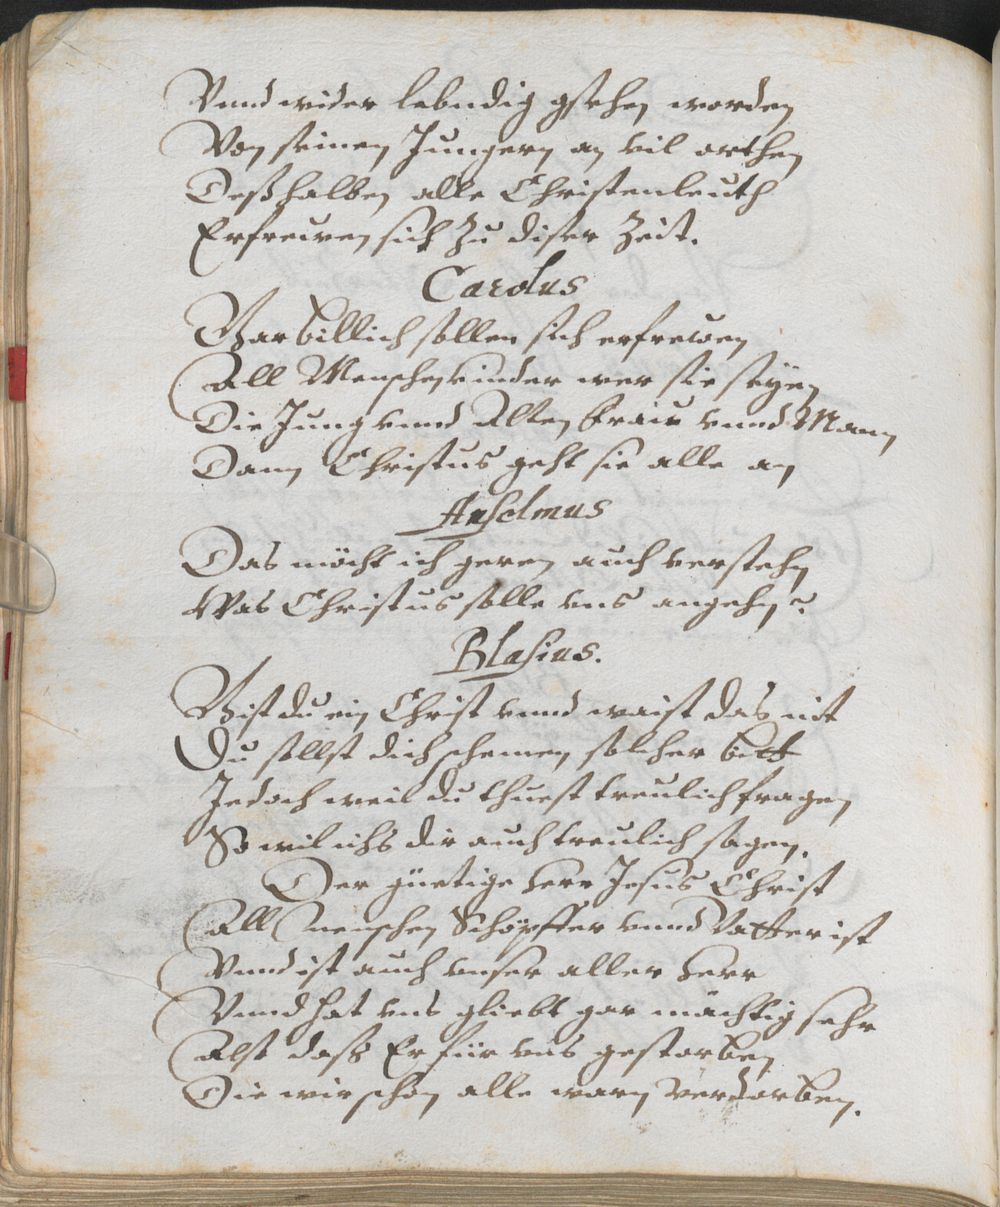 Vnnd wider lebendig gsehen worden
Von seinen Jungern an vil orthen
Deßhalben alle Christenleuth
Erfrewen sich zu diser Zeit.
Carolus
Gar billich sollen sich erfrewen
All Menschenkinder wer sie seyen
Die Jung vnnd Alten fraw vnnd Mann
Dann Christus geht sie alle an
Anselmus
Das möcht ich geren auch verstehn
Was Christus solle vns angehn?
Blasius.
Bist du ein Christ vnnd waist das nit
Du sollst dich schemen solcher bitt
Jedoch weil du thuest treulich fragen
So wil ichs dir auch treulich sagen.
Der güetige Herr Jesus Christ
All Menschen Schöpffer vnnd Vatter ist
Vnnd ist auch vnser aller Herr
Vnnd hat vns gliebt gar mächtig sehr
Alst dass Er für vns gestorben
Die wir schon alle warn verdorben.